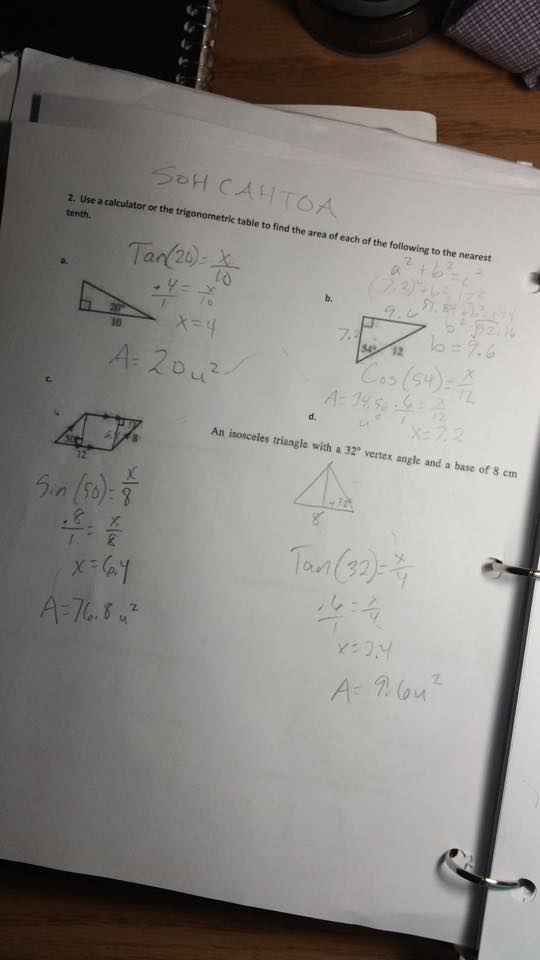 SOH CAHTOA
2. Use a calculator or the trigonometric table to find the area of each of the following to the nearest
tenth.
a.
Tan(20) = x/10
.4/1 = x/10
x = 4
20°
10
A = 20u²
b.
a² + b² = c²
(7.2)² + b² = 12²
51.84 + b² = 144
b² √92.16
b = 9.6
9.6
7.2
54°
12
Cos(54) = x/12
.6/1 = x/12
x = 7.2
A = 34.56
u²
c.
50°
12
8
Sin(50) = x/8
.8/1 = x/8
x = 6.4
A = 76.8u²
d.
An isosceles triangle with a 32° vertex angle and a base of 8 cm
32°
8
Tan(32) = x/4
.6/1 = x/4
x = 2.4
A = 9.6u²